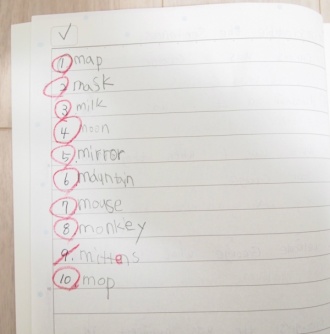 1 map
2 mask
3 milk
4 moon
5 mirror
6 mountain
7 mouse
8 monkey
9. mittens
10. mop